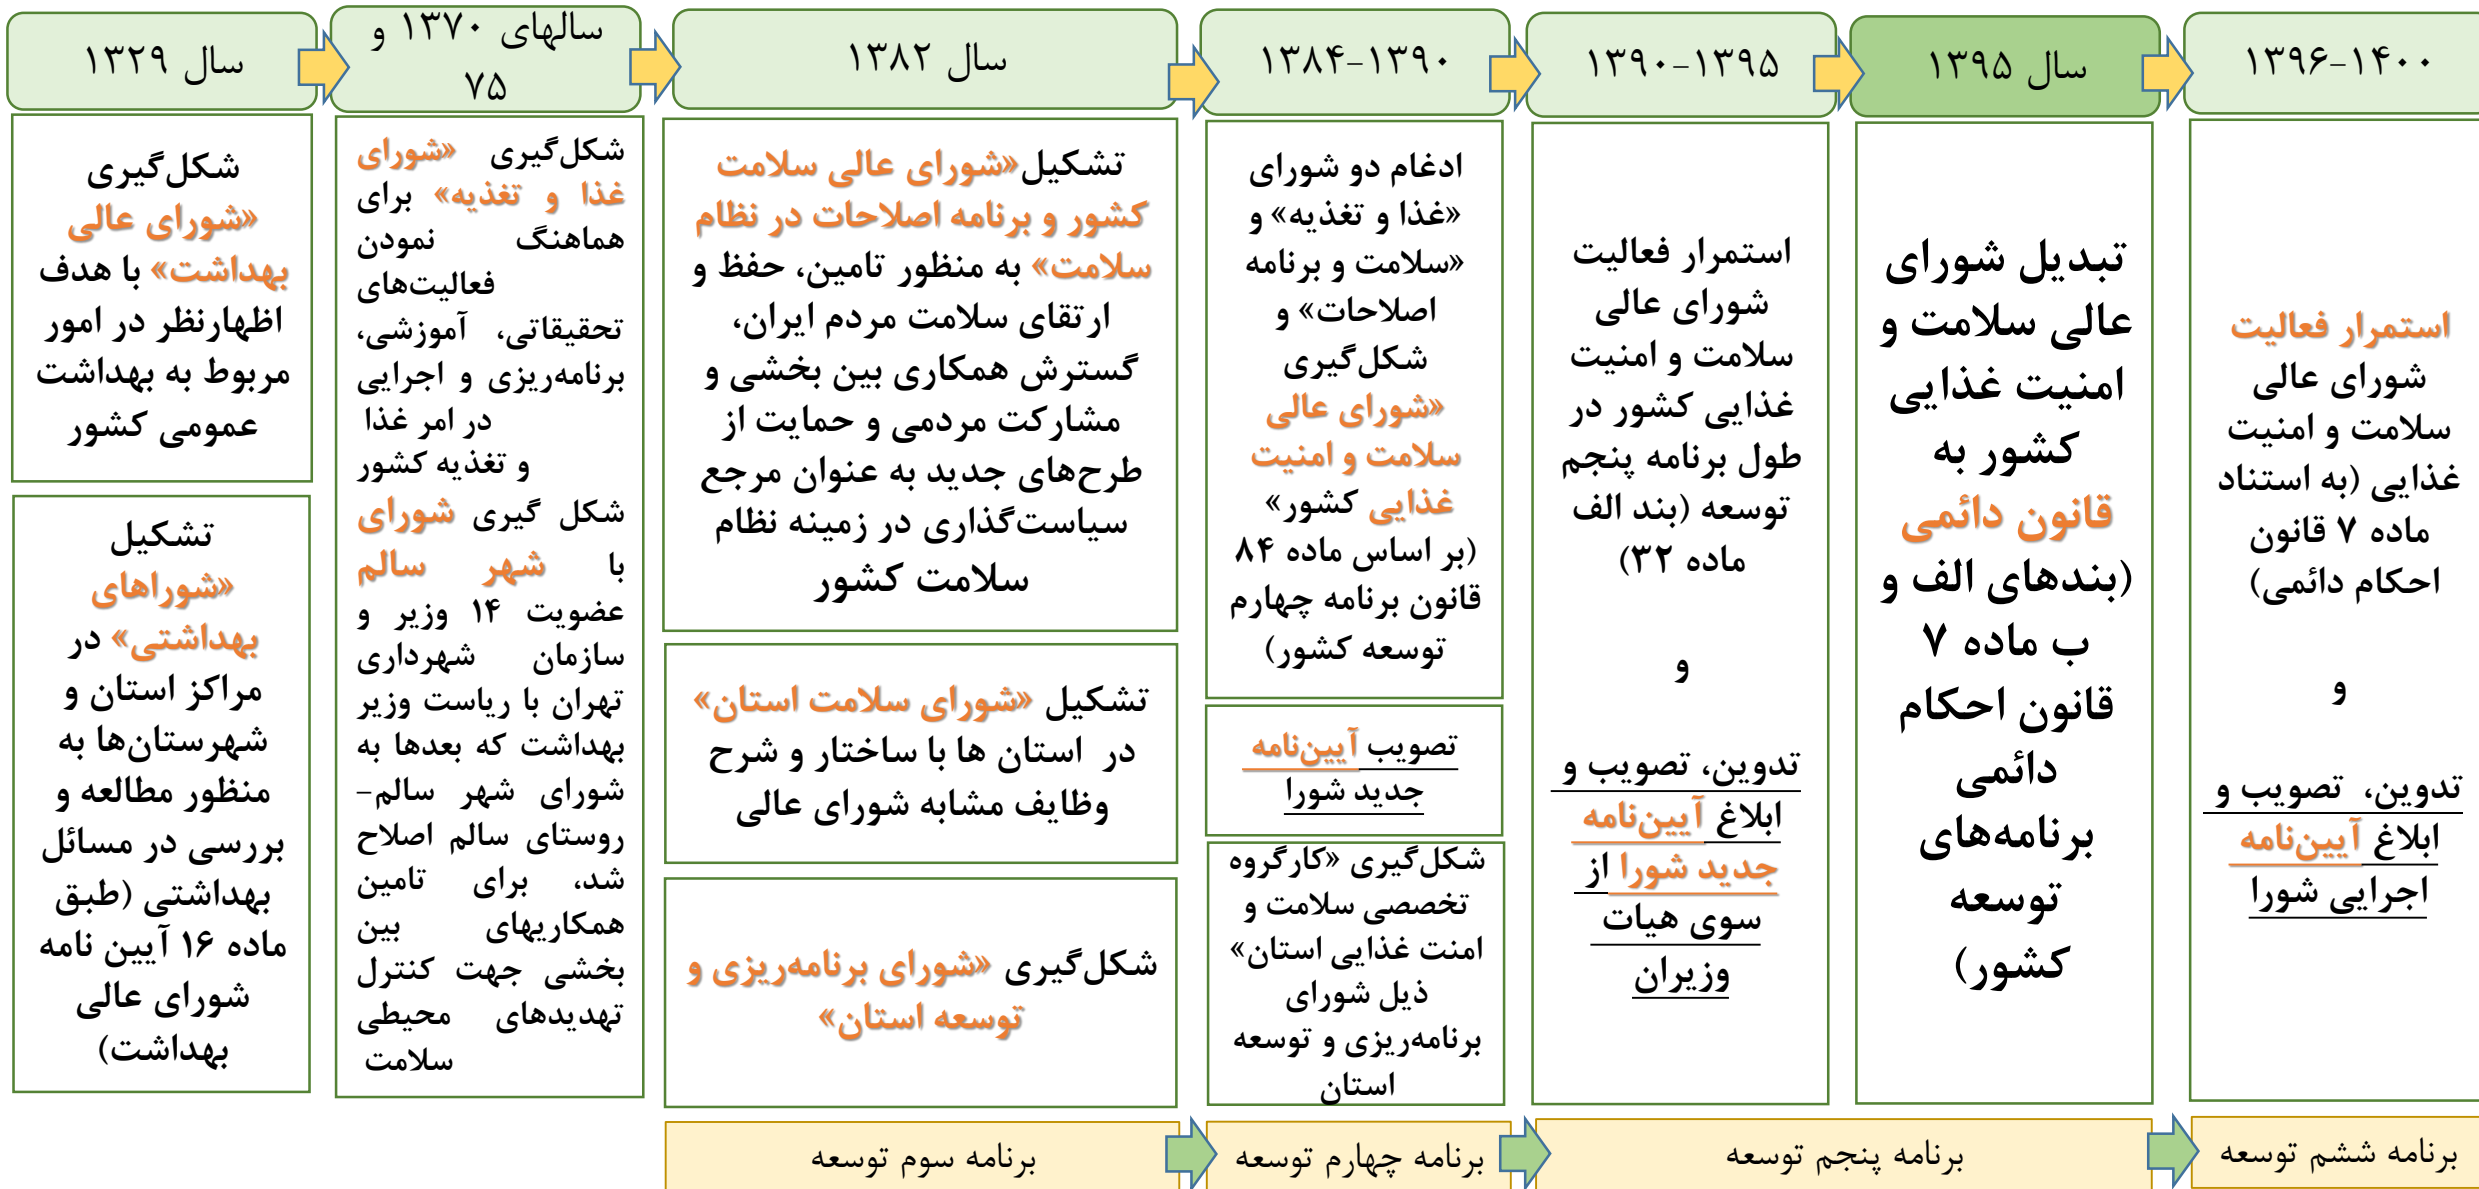 سال ۱۳۲۹
شکل‌گیری
«شورای عالی
بهداشت» با هدف
اظهارنظر در امور
مربوط به بهداشت
عمومی کشور
تشکیل
«شوراهای
بهداشتی» در
مراکز استان و
شهرستان‌ها به
منظور مطالعه و
بررسی در مسائل
بهداشتی (طبق
ماده ۱۶ آیین نامه
شورای عالی
بهداشت)
سالهای ۱۳۷۰ و
۷۵
شکل‌گیری «شورای
غذا و تغذیه» برای
هماهنگ نمودن
فعالیت‌های
تحقیقاتی، آموزشی،
برنامه‌ریزی و اجرایی
در امر غذا
و تغذیه کشور
شکل گیری شورای
شهر سالم با
عضویت ۱۴ وزیر و
سازمان شهرداری
تهران با ریاست وزیر
بهداشت که بعدها به
شورای شهر سالم-
روستای سالم اصلاح
شد، برای تامین
همکاریهای بین
بخشی جهت کنترل
تهدیدهای محیطی
سلامت
سال ۱۳۸۲
تشکیل«شورای عالی سلامت
کشور و برنامه اصلاحات در نظام
سلامت» به منظور تامین، حفظ و
ارتقای سلامت مردم ایران،
گسترش همکاری بین بخشی و
مشارکت مردمی و حمایت از
طرح‌های جدید به عنوان مرجع
سیاست‌گذاری در زمینه نظام
سلامت کشور
تشکیل «شورای سلامت استان»
در استان ها با ساختار و شرح
وظایف مشابه شورای عالی
شکل‌گیری «شورای برنامه‌ریزی و
توسعه استان»
۱۳۸۴-۱۳۹۰
ادغام دو شورای
«غذا و تغذیه» و
«سلامت و برنامه
اصلاحات» و
شکل‌گیری
«شورای عالی
سلامت و امنیت
غذایی کشور»
(بر اساس ماده ۸۴
قانون برنامه چهارم
توسعه کشور)
تصویب آیین‌نامه
جدید شورا
شکل‌گیری «کارگروه
تخصصی سلامت و
امنت غذایی استان»
ذیل شورای
برنامه‌ریزی و توسعه
استان
۱۳۹۰-۱۳۹۵
استمرار فعالیت
شورای عالی
سلامت و امنیت
غذایی کشور در
طول برنامه پنجم
توسعه (بند الف
ماده ۳۲)
و
تدوین، تصویب و
ابلاغ آیین‌نامه
جدید شورا از
سوی هیات
وزیران
سال ۱۳۹۵
تبدیل شورای
عالی سلامت و
امنیت غذایی
کشور به
قانون دائمی
(بندهای الف و
ب ماده ۷
قانون احکام
دائمی
برنامه‌های
توسعه
کشور)
۱۳۹۶-۱۴۰۰
استمرار فعالیت
شورای عالی
سلامت و امنیت
غذایی (به استناد
ماده ۷ قانون
احکام دائمی)
و
تدوین، تصویب و
ابلاغ آیین‌نامه
اجرایی شورا
برنامه سوم توسعه
برنامه چهارم توسعه
برنامه پنجم توسعه
برنامه ششم توسعه